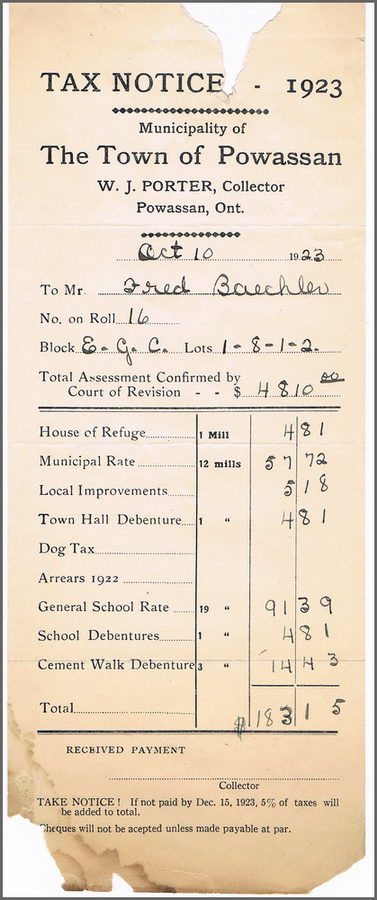 TAX NOTICE - 1923
Municipality of
The Town of Powassan
W. J. PORTER, Collector
Powassan, Ont.
Oct 10 1923
To Mr. Fred Baechler
No. on Roll 16
Block E. G. C. Lots 1-8-1-2.
Total Assessment Confirmed by
Court of Revision - - $ 4810 00
House of Refuge 1 Mill 4 81
Municipal Rate 12 mills 57 72
Local Improvements 5 18
Town Hall Debenture 1 " 4 81
Dog Tax
Arrears 1922
General School Rate 19 " 91 39
School Debentures 1 " 4 81
Cement Walk Debenture 3 " 14 43
Total $ 183 15
RECEIVED PAYMENT
Collector
TAKE NOTICE! If not paid by Dec. 15, 1923, 5% of taxes will
be added to total.
Cheques will not be acepted unless made payable at par.